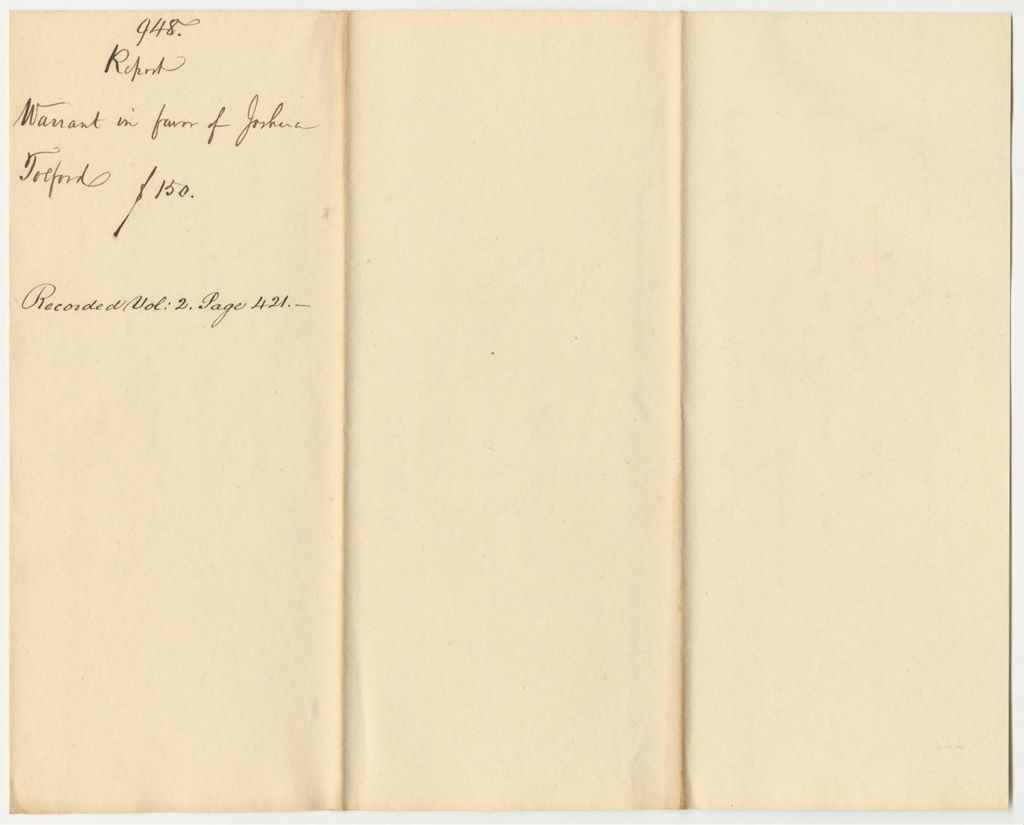 948.
Report
Warrant in favor of Joshua
Tolford $150.
Recorded Vol: 2. Page 421.—